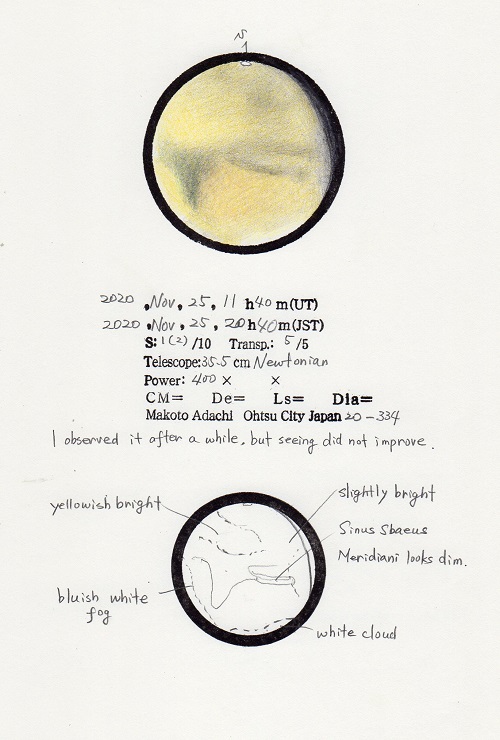 S
2020 , Nov, 25, 11 h40 m(UT)
2020 , Nov, 25, 20 h40 m(JST)
S: 1(2) /10 Transp.: 5 /5
Telescope: 35.5 cm Newtonian
Power: 400 × ×
CM= De= Ls= Dia=
Makoto Adachi Ohtsu City Japan 20-334
I observed it after a while, but seeing did not improve.
yellowish bright
slightly bright
Sinus Sbaeus
Meridiani looks dim.
bluish white
fog
white cloud